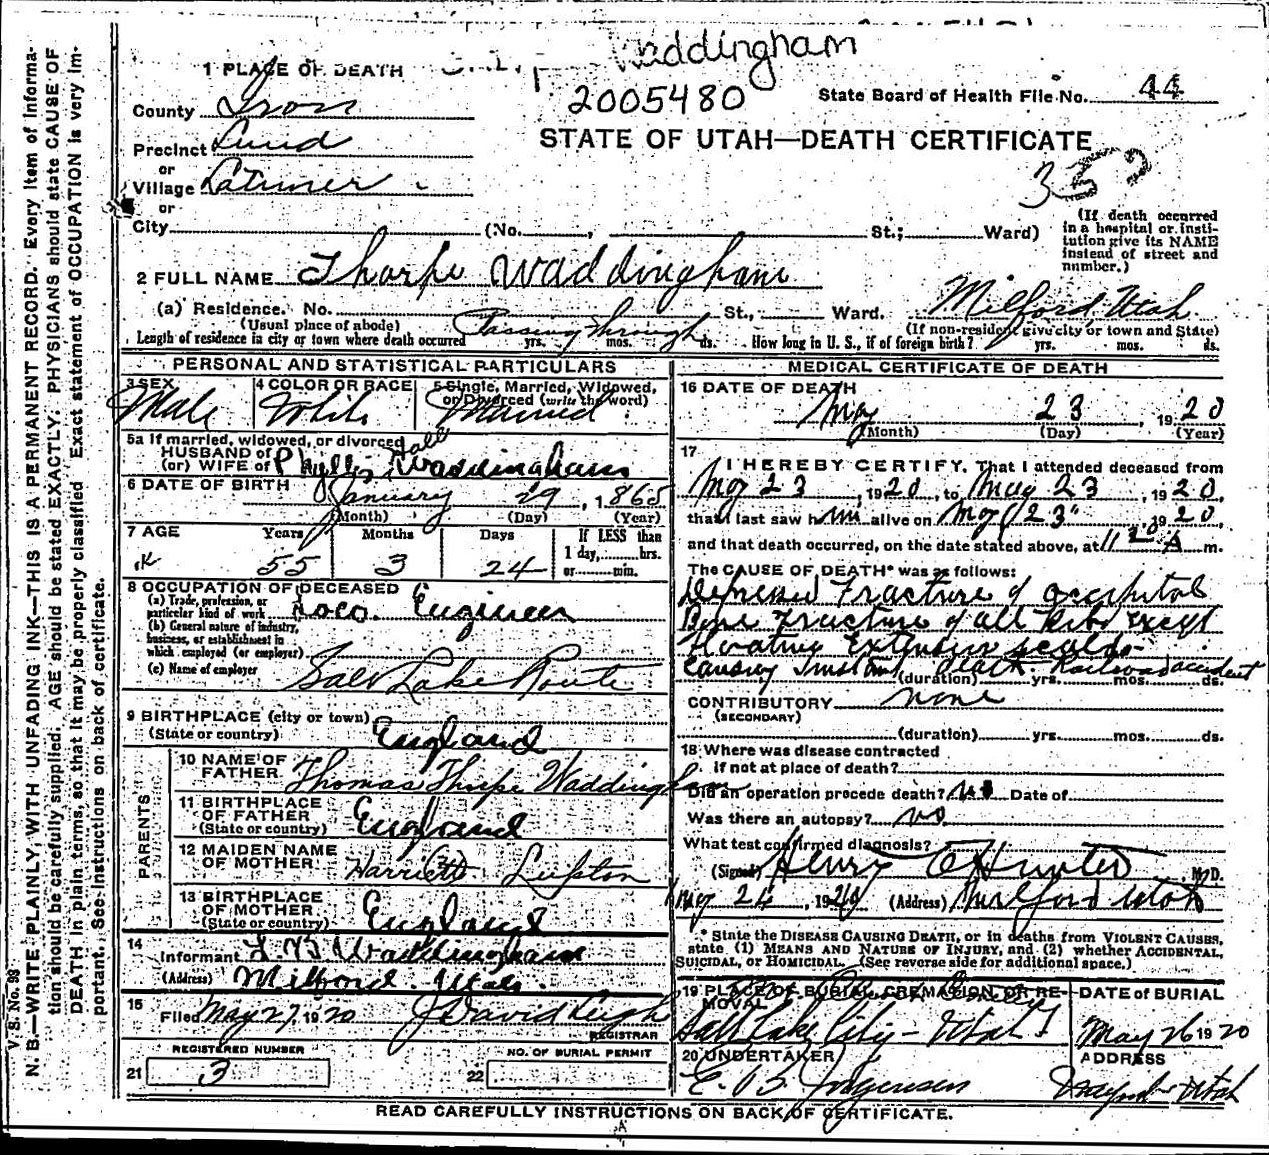 Waddingham
1 PLACE OF DEATH
2005480
State Board of Health File No. 44
County Iron
STATE OF UTAH—DEATH CERTIFICATE
Precinct Lund
352
or
Village Latimer
or
City (No. , St.; Ward)
(If death occurred in a hospital or institution give its NAME instead of street and number.)
2 FULL NAME Thorpe Waddingham
(a) Residence. No. St., Ward. Milford, Utah.
(Usual place of abode) (If non-resident give city or town and State)
Length of residence in city or town where death occurred Passing through yrs. mos. ds. How long in U. S., if of foreign birth? yrs. mos. ds.
PERSONAL AND STATISTICAL PARTICULARS
3 SEX Male
4 COLOR OR RACE White
5 Single, Married, Widowed, or Divorced (write the word) Married
5a If married, widowed, or divorced
HUSBAND of
(or) WIFE of Phyllis Hall Waddingham
6 DATE OF BIRTH January 29, 1865
(Month) (Day) (Year)
7 AGE Years Months Days If LESS than
1 day, hrs.
or min.
55 3 24
8 OCCUPATION OF DECEASED
(a) Trade, profession, or particular kind of work Loco. Engineer
(b) General nature of industry, business, or establishment in which employed (or employer)
(c) Name of employer Salt Lake Route
9 BIRTHPLACE (city or town)
(State or country) England
PARENTS
10 NAME OF FATHER Thomas Thorpe Waddingham
11 BIRTHPLACE OF FATHER
(State or country) England
12 MAIDEN NAME OF MOTHER Harriett Lupton
13 BIRTHPLACE OF MOTHER
(State or country) England
14
Informant Waddingham
(Address) Milford Utah.
15
Filed May 27 1920 J David Leigh
REGISTRAR
REGISTERED NUMBER
21 3
NO. OF BURIAL PERMIT
22
MEDICAL CERTIFICATE OF DEATH
16 DATE OF DEATH
May 23, 1920
(Month) (Day) (Year)
17
I HEREBY CERTIFY, That I attended deceased from
May 23, 1920, to May 23, 1920,
that I last saw him alive on May 23, 1920
and that death occurred, on the date stated above, at 11 20 A m.
The CAUSE OF DEATH* was as follows:
Depressed Fracture of occipital
Bone Fracture of all Ribs Except
Floating Extensive scalds
Causing Instant death. Railroad accident
(duration) yrs. mos. ds.
CONTRIBUTORY none
(SECONDARY)
(duration) yrs. mos. ds.
18 Where was disease contracted
if not at place of death?
Did an operation precede death? no Date of
Was there an autopsy? no
What test confirmed diagnosis?
(Signed) Henry C Hunter, M. D.
May 24, 1920 (Address) Milford Utah
* State the DISEASE CAUSING DEATH, or in deaths from VIOLENT CAUSES, state (1) MEANS AND NATURE OF INJURY, and (2) whether ACCIDENTAL, SUICIDAL, or HOMICIDAL. (See reverse side for additional space.)
19 PLACE OF BURIAL, CREMATION, OR REMOVAL
Salt Lake City - Utah
DATE of BURIAL
May 26 1920
20 UNDERTAKER
E. B. Jorgensen
ADDRESS
Utah
READ CAREFULLY INSTRUCTIONS ON BACK OF CERTIFICATE.
V. S. No. 98
N. B.—WRITE PLAINLY, WITH UNFADING INK—THIS IS A PERMANENT RECORD. Every item of information should be carefully supplied. AGE should be stated EXACTLY. PHYSICIANS should state CAUSE OF DEATH in plain terms, so that it may be properly classified. Exact statement of OCCUPATION is very important. See instructions on back of certificate.